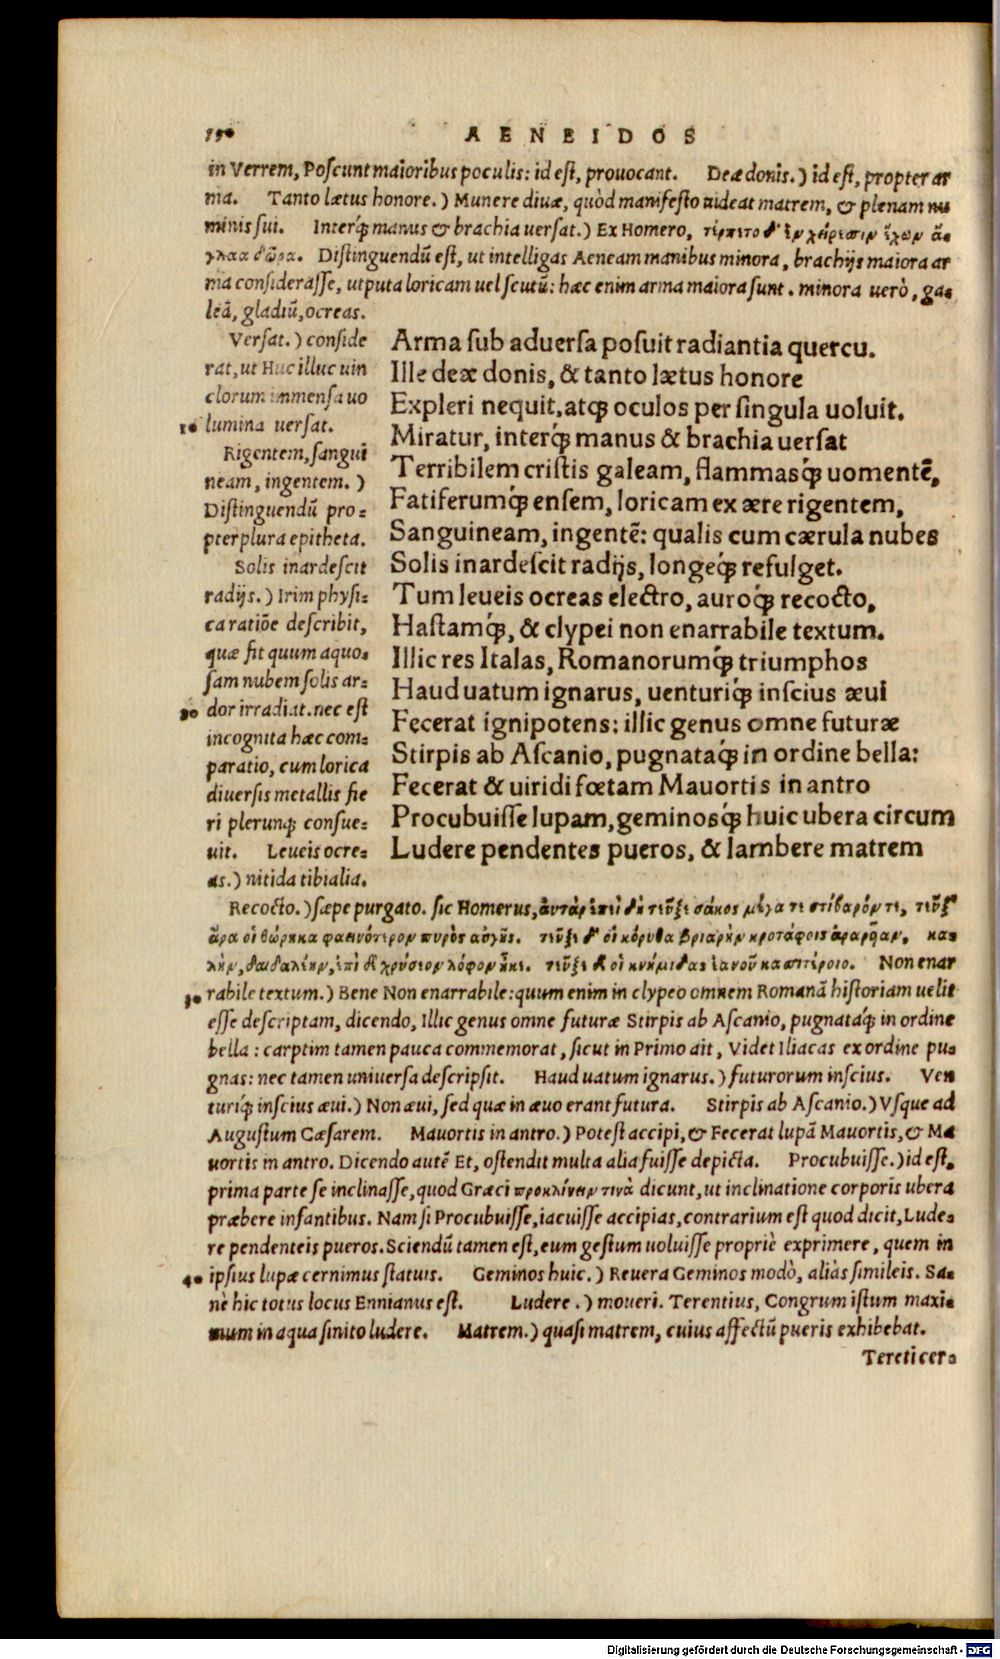 AENEIDOS
in Verrem, Poſcunt maioribus poculis: id eſt, prouocant. Deæ donis.) id eſt, propter ar
ma. Tanto lætus honore.) Munere diuæ, quòd manifeſto uideat matrem, & plenam nu
minis ſui. Interq́; manus & brachia uerſat.) Ex Homero, τέρπετο δ' ἐν χείρεσσιν ἔχων ἀ-
γλαα δῶρα. Diſtinguendū eſt, ut intelligas Aeneam manibus minora, brachijs maiora ar
ma conſideraſſe, utputa loricam uel ſcutū: hæc enim arma maiora ſunt. minora uerò, ga-
leā, gladiū, ocreas.
Verſat.) conſide
rat, ut Huc illuc uin
clorum immenſa uo
10 lumina uerſat.
Rigentem, ſangui
neam, ingentem.)
Diſtinguendū pro-
pter plura epitheta.
Solis inardeſcit
radijs.) Irim phyſi-
ca ratiōe deſcribit,
quæ fit quum aquo-
ſam nubem ſolis ar-
20 dor irradiat. nec eſt
incognita hæc com-
paratio, cum lorica
diuerſis metallis fie
ri plerunq; conſue-
uit. Leueis ocre-
as.) nitida tibialia.
Arma ſub aduerſa poſuit radiantia quercu.
Ille deæ donis, & tanto lætus honore
Expleri nequit, atq; oculos per ſingula uoluit.
Miratur, interq́; manus & brachia uerſat
Terribilem criſtis galeam, flammasq́; uomentē,
Fatiferumq́; enſem, loricam ex ære rigentem,
Sanguineam, ingentē: qualis cum cærula nubes
Solis inardeſcit radijs, longeq́; refulget.
Tum leueis ocreas electro, auroq́; recocto,
Haſtamq́;, & clypei non enarrabile textum.
Illic res Italas, Romanorumq́; triumphos
Haud uatum ignarus, uenturiq́; inſcius æui
Fecerat ignipotens: illic genus omne futuræ
Stirpis ab Aſcanio, pugnataq́; in ordine bella:
Fecerat & uiridi fœtam Mauortis in antro
Procubuiſſe lupam, geminosq́; huic ubera circum
Ludere pendentes pueros, & lambere matrem
Recocto.) ſæpe purgato. ſic Homerus, αὐτὰρ ἐπεὶ δὴ τεῦξε σάκος μέγα τε στιβαρόν τε, τεῦξ'
ἄρα οἱ θώρηκα φαεινότερον πυρὸς αὐγῆς. τεῦξε δ' οἱ κόρυθα βριαρὴν κροτάφοις ἀραρῦαν, κα-
λὴν, δαιδαλέην, ἐπὶ δὲ χρύσεον λόφον ἧκε. τεῦξε δὲ οἱ κνήμιδας ἑανοῦ κασσιτέροιο. Non enar
30 rabile textum.) Bene Non enarrabile: quum enim in clypeo omnem Romanā hiſtoriam uelit
eſſe deſcriptam, dicendo, Illic genus omne futuræ Stirpis ab Aſcanio, pugnatáq; in ordine
bella: carptim tamen pauca commemorat, ſicut in Primo ait, Videt Iliacas ex ordine pu-
gnas: nec tamen uniuerſa deſcripſit. Haud uatum ignarus.) futurorum inſcius. Ven
turiq́; inſcius æui.) Non æui, ſed quæ in æuo erant futura. Stirpis ab Aſcanio.) Vſque ad
Auguſtum Cæſarem. Mauortis in antro.) Poteſt accipi, & Fecerat lupā Mauortis, & Ma
uortis in antro. Dicendo autē Et, oſtendit multa alia fuiſſe depicta. Procubuiſſe.) id eſt,
prima parte ſe inclinaſſe, quod Græci προκλίνειν τινὰ dicunt, ut inclinatione corporis ubera
præbere infantibus. Nam ſi Procubuiſſe, iacuiſſe accipias, contrarium eſt quod dicit, Lude-
re pendenteis pueros. Sciendū tamen eſt, eum geſtum uoluiſſe propriè exprimere, quem in
40 ipſius lupæ cernimus ſtatuis. Geminos huic.) Reuera Geminos modò, aliàs ſimileis. Sa-
nè hic totus locus Ennianus eſt. Ludere.) moueri. Terentius, Congrum iſtum maxi-
mum in aqua ſinito ludere. Matrem.) quaſi matrem, cuius affectū pueris exhibebat.
Tereti cer-
Digitalisierung gefördert durch die Deutsche Forschungsgemeinschaft - DFG